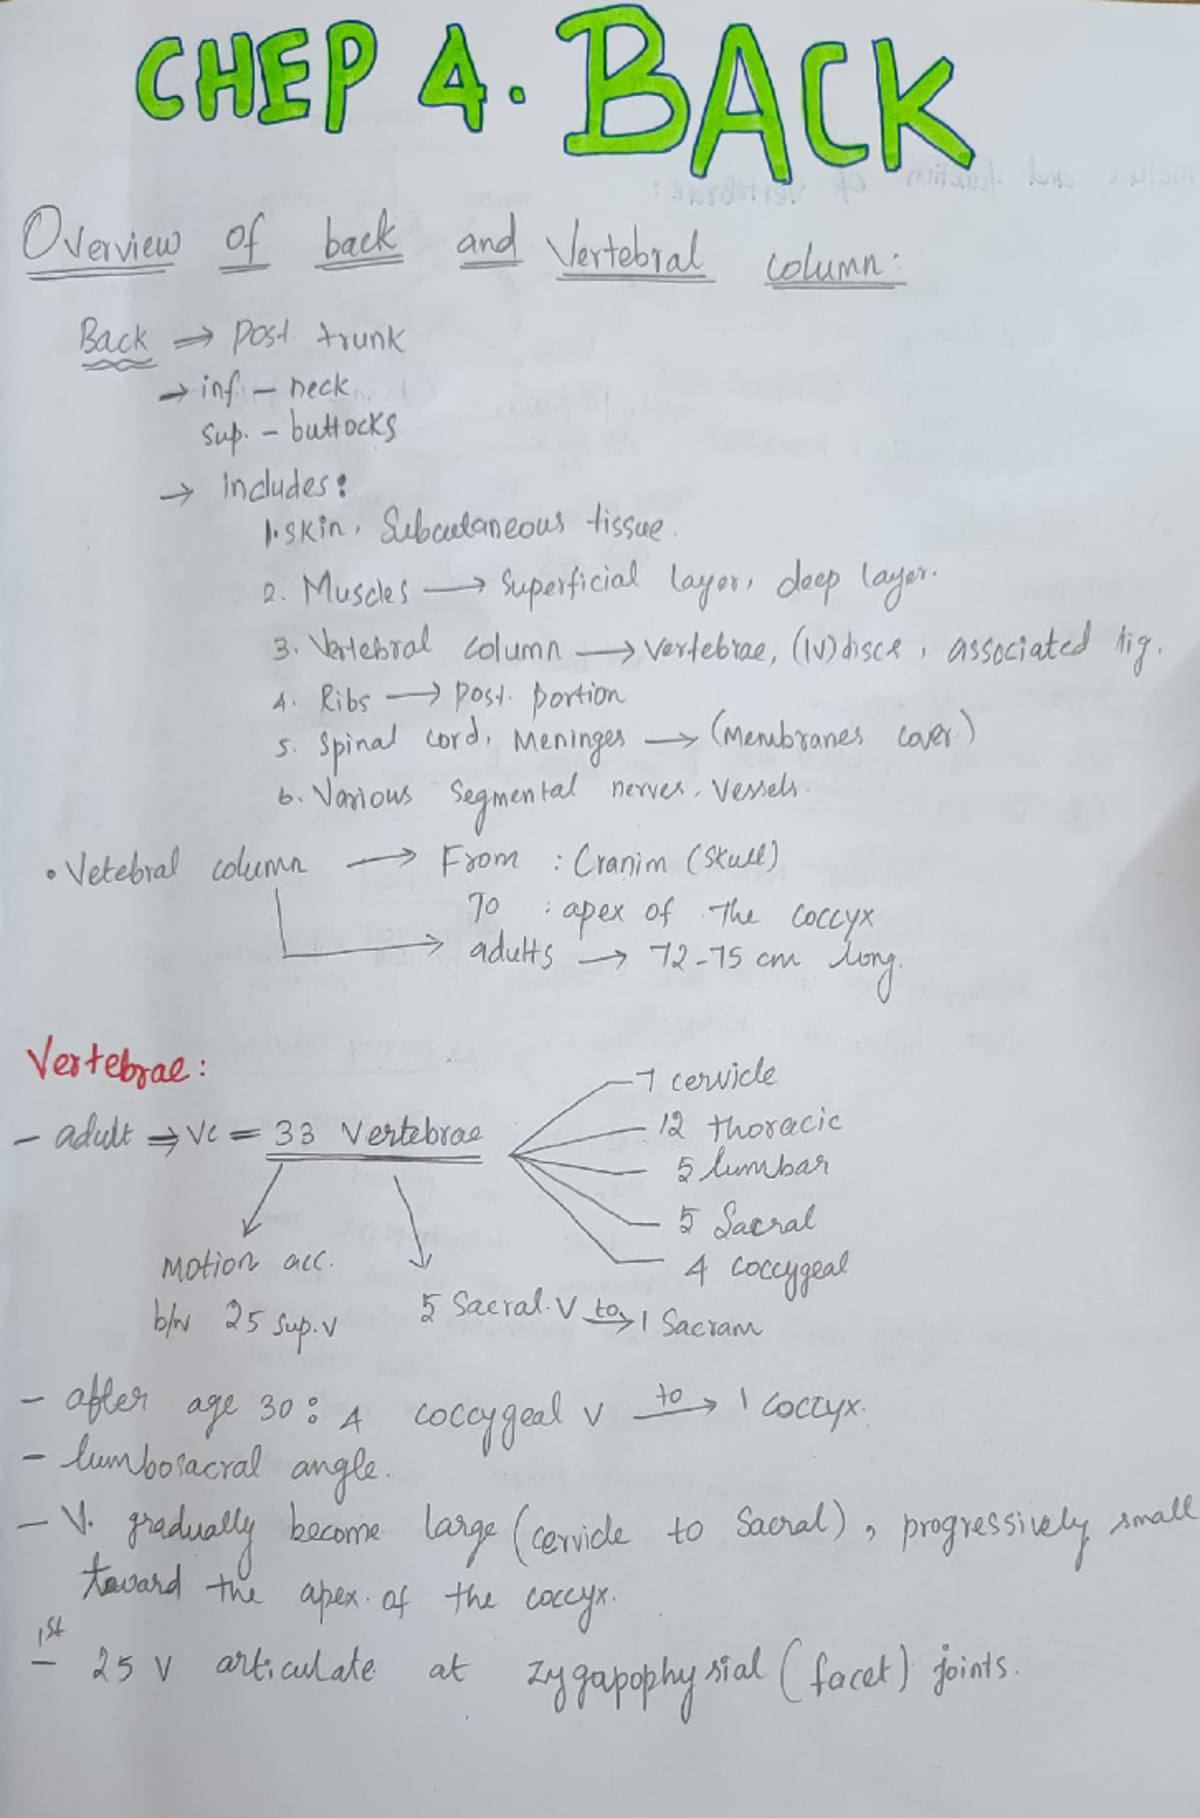 CHEP 4. BACK
Overview of back and Vertebral column:
Back ⇒ post trunk
→ inf. – neck
sup. – buttocks
→ includes:
1. skin, Subcutaneous tissue.
2. Muscles → Superficial layer, deep layer.
3. Vertebral column → vertebrae, (IV) discs, associated lig.
4. Ribs → post. portion
5. Spinal cord, Meninges → (Membranes cover)
6. Various segmental nerves, vessels.
• Vetebral column → From : Cranim (skull)
To : apex of the coccyx
→ adults → 72-75 cm long.
Vertebrae:
– adult ⇒ VC = 33 Vertebrae
7 cervicle
12 thoracic
5 lumbar
5 Sacral
4 coccygeal
Motion acc.
b/w 25 sup. v
5 Sacral. V to → 1 Sacram
– after age 30: 4 coccygeal v to → 1 coccyx.
– lumbosacral angle.
– V. gradually become large (cervicle to Sacral), progressively small
toward the apex of the coccyx.
– 1st 25 v articulate at zygapophysial (facet) joints.